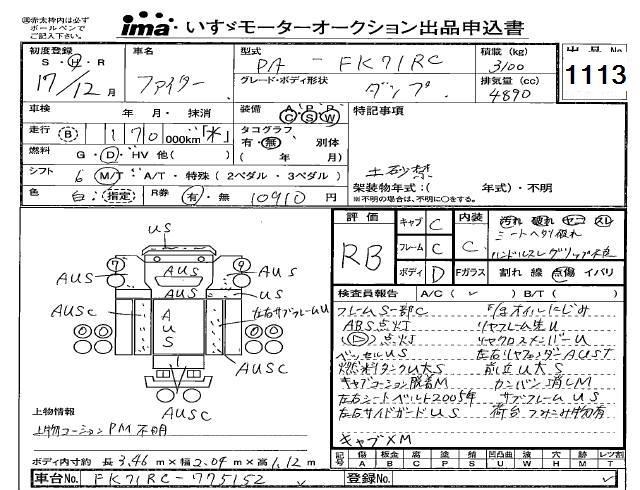 ㊟赤太枠内は必ず
ボールペンで
ご記入下さい。
ima いすゞモーターオークション出品申込書
初度登録 車名 型式 積載 (kg) 出品No.
S・H・R 17/12月 ファイター PA - FK71RC 3100
グレード・ボディ形状 ダンプ 排気量 (cc) 4890 1113
車検 年 月・ 抹消 装備 A P R C S W 特記事項
走行 B 170 000km「水」 タコグラフ 有・無 別体
燃料 G・D・HV 他( ) ( 年 月) 土砂禁
シフト 6 M/T・A/T・特殊(2ペダル・3ペダル) 架装物年式:( 年式)・不明
色 白:指定 R券 有・無 10910 円 ※不明の場合は、不明に○をする。
評価 RB キャブ C 内装 C 汚れ 破れ ヤニ スレ
シートヘタリ破れ
フレーム C ハンドルスレグリップ欠
ボディ D Fガラス 割れ 線 点傷 イバリ
検査員報告 A/C( ✓ ) B/T( )
フレームS一部C F/Gオイルにじみ
ABS点火J リヤフレーム先U
(▷)点火J リヤクロスメンバーU
ベッセルUS 左右リヤフェンダーAUST
燃料タンクU大S 前立U大S
キャブコーション脱着M カンバン消しM
左右シートベルト2005年 サブフレームUS
左右サイドガードUS 荷台
キャブXM
US
AUS AUS AUS
AUS US
AUSC AUS 左右サブフレームU
AUSC
AUSC
上物情報
上物コーションPM不明
ボディ内寸約 長3.46m×幅2.04m×高1.12m
記号 傷A 板金B 腐C 塗P 錆S 凹凸曲U 波W 穴H 跡M レツ割T
車台No. FK71RC-775152 登録No.